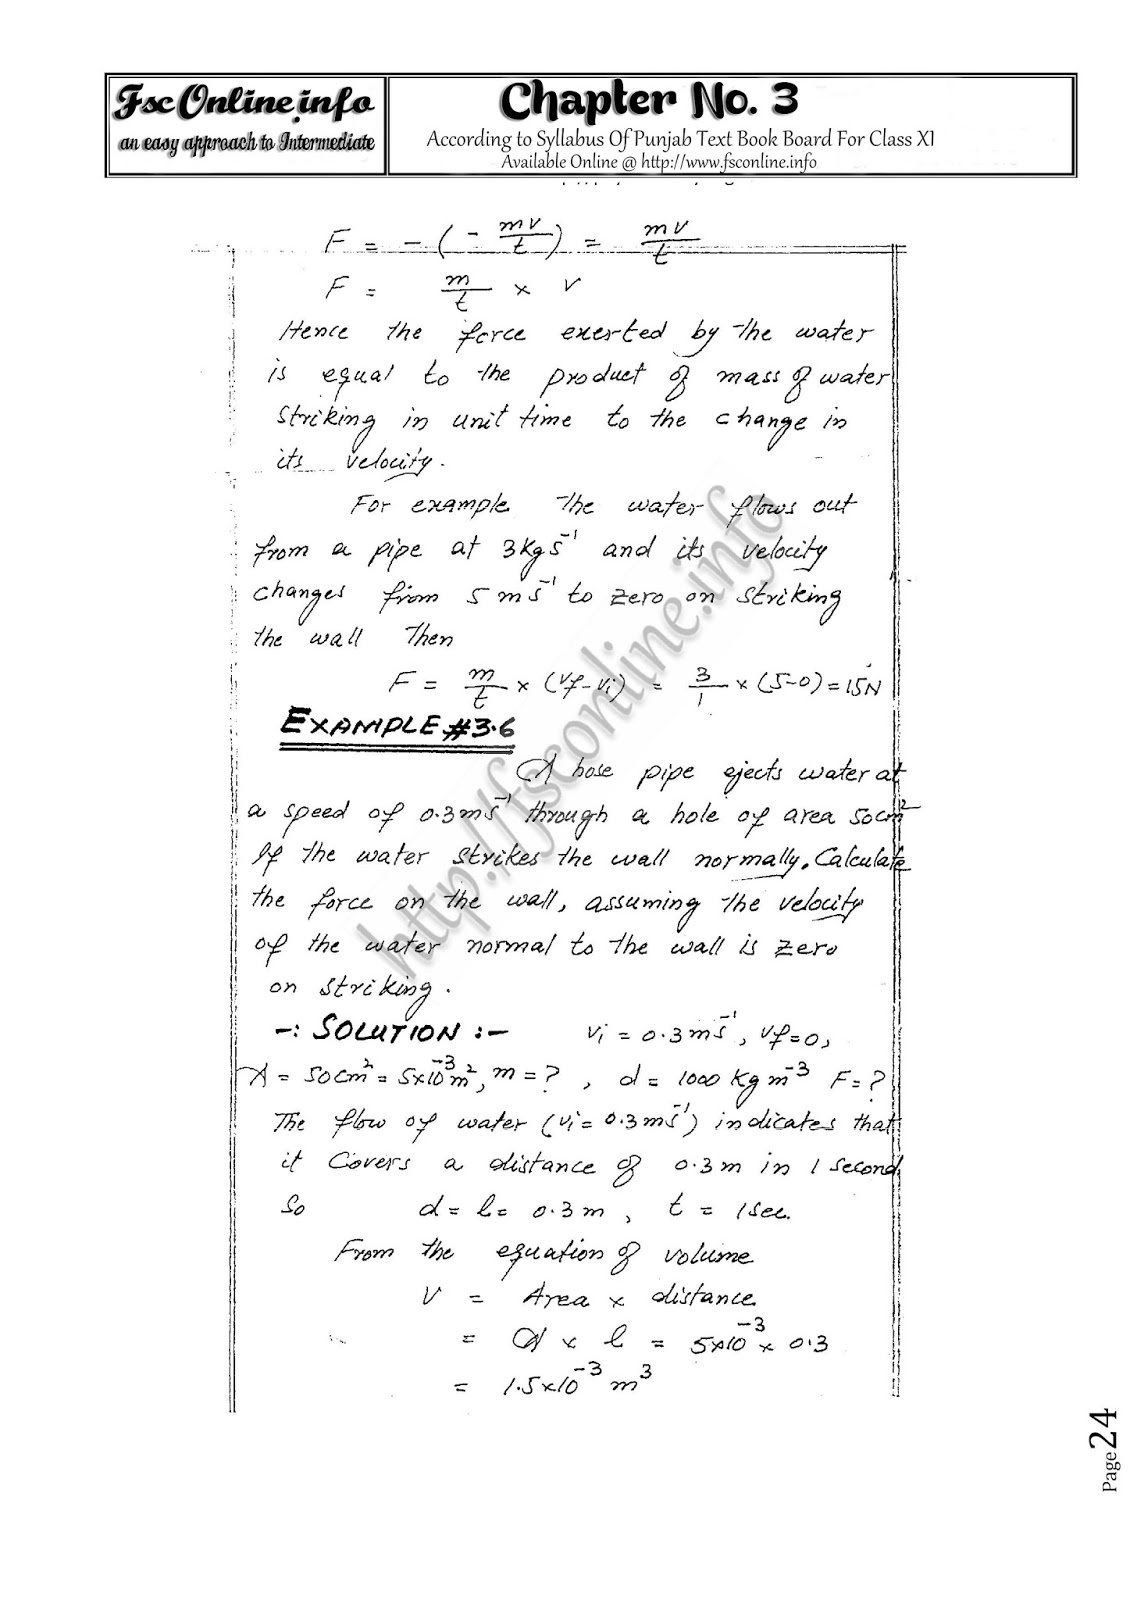 Fsc Online.info
an easy approach to Intermediate
Chapter No. 3
According to Syllabus Of Punjab Text Book Board For Class XI
Available Online @ http://www.fsconline.info
F = -(-mv/t) = mv/t
F = m/t × v
Hence the force exerted by the water
is equal to the product of mass of water
striking in unit time to the change in
its velocity.
For example The water flows out
from a pipe at 3kgs⁻¹ and its velocity
changes from 5ms⁻¹ to zero on striking
the wall Then
F = m/t × (vf-vi) = 3/1 × (5-0) = 15N
EXAMPLE #3.6
A hose pipe ejects water at
a speed of 0.3ms⁻¹ through a hole of area 50cm²
If the water strikes the wall normally. Calculate
the force on the wall, assuming the velocity
of the water normal to the wall is zero
on striking.
-: SOLUTION :- vi = 0.3ms⁻¹, vf=0,
A = 50cm² = 5x10⁻³m², m = ?, d = 1000 Kgm⁻³ F = ?
The flow of water (vi = 0.3ms⁻¹) indicates that
it Covers a distance of 0.3m in 1 second
So d = l = 0.3m, t = 1sec.
From the equation of volume
V = Area x distance
= A x l = 5x10⁻³ x 0.3
= 1.5x10⁻³ m³
http://fsconline.info
Page 24